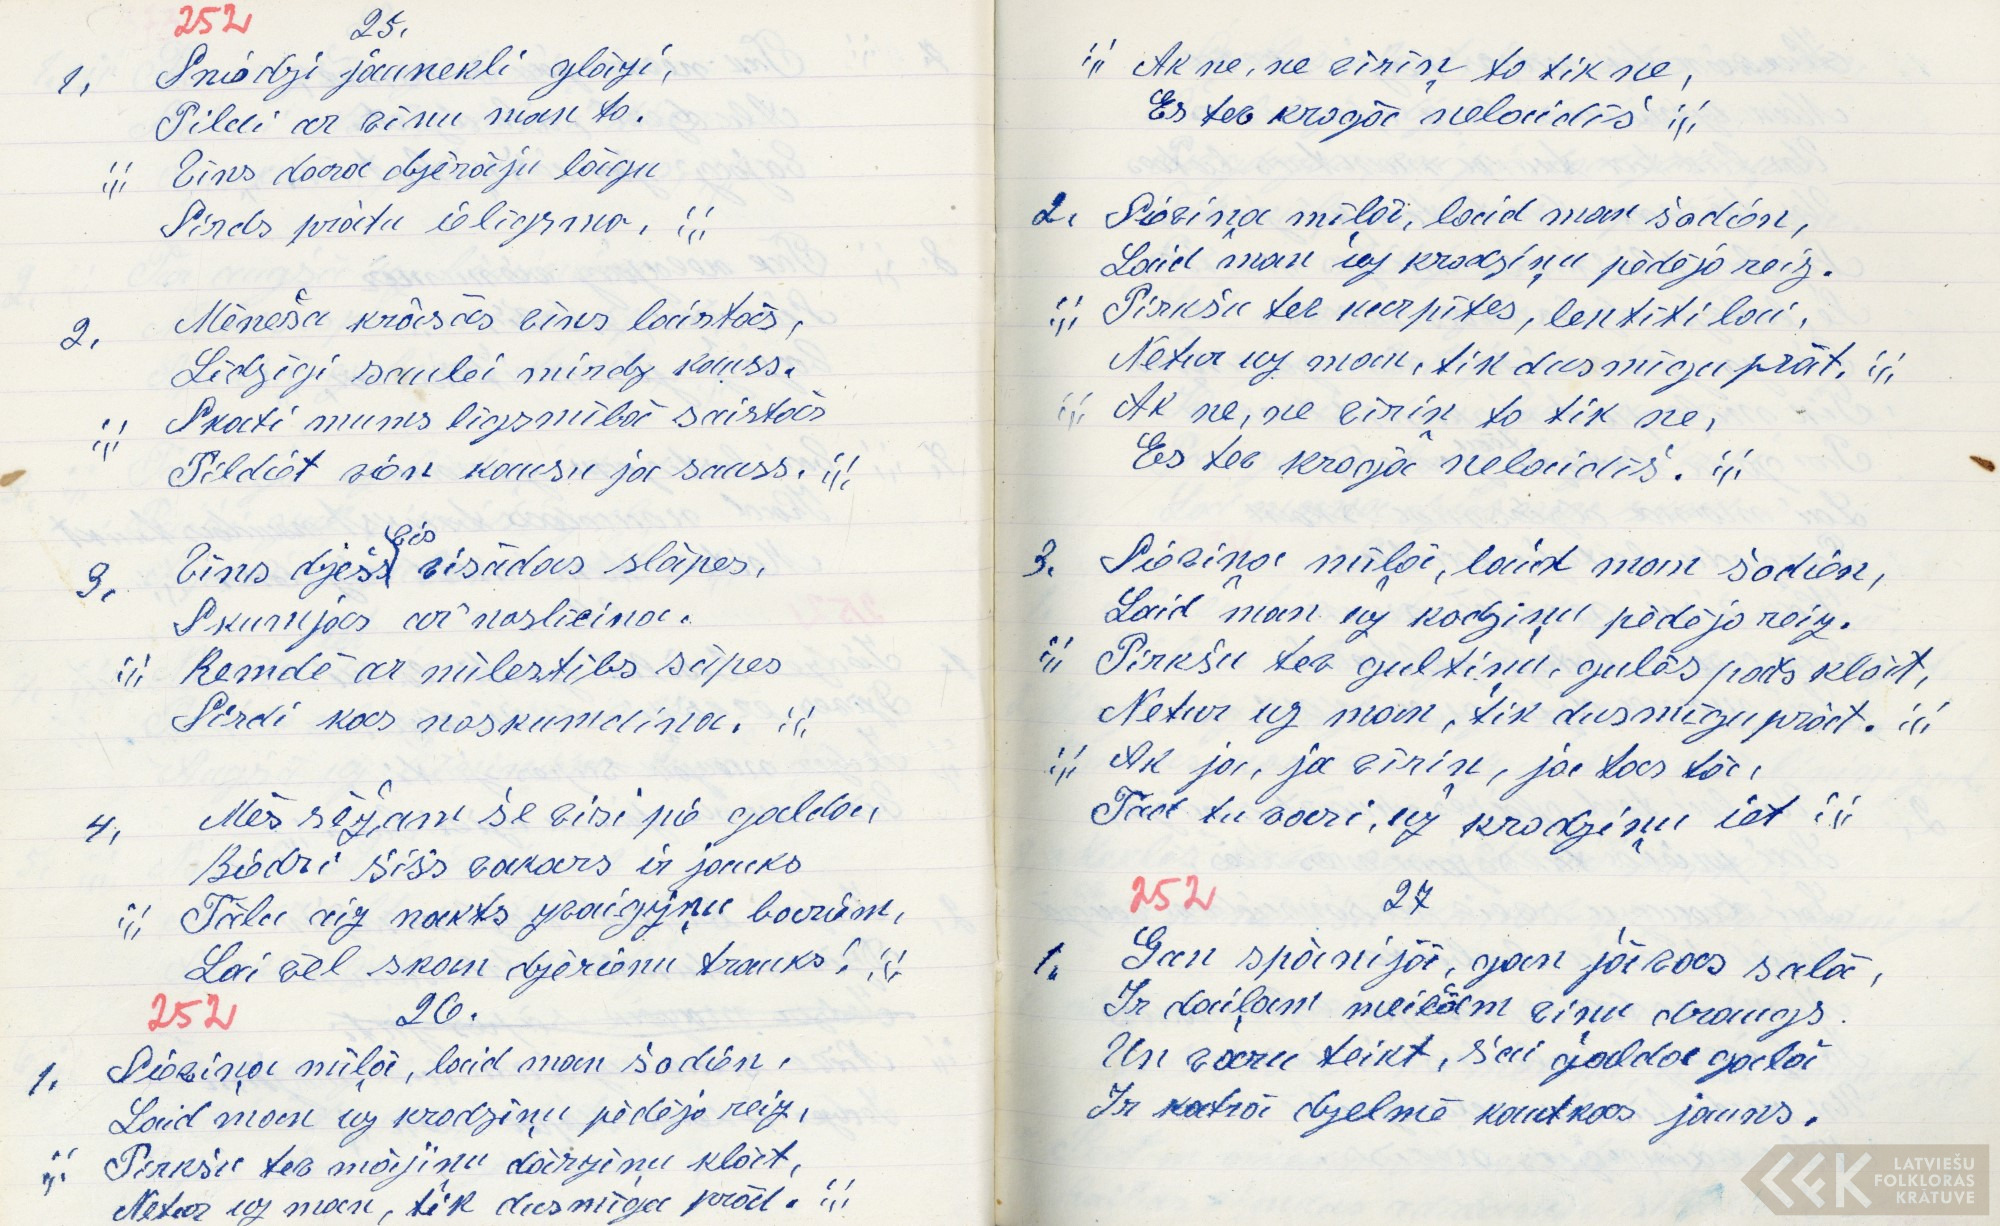 252 25.
1. Sniedzi jaunekli glāzi,
Pildi ar vīnu man to.
;;; Vīns dara dzērāju lāgu
Sirds prātu ielīgsmo. ;;;
2. Mēneša krāsās vīns laistās,
Lidzīgi saulei mirdz kauss.
;;; Skati mums līgsmībā saistās
Pildiet vien kausu ja sauss. ;;;
vis
3. Vīns dzēšs visādas slāpes,
Skumjas ar noslīcina.
;;; Remdē ar mīlestībs sāpes
Sirdi kas noskumdina. ;;;
4. Mēs sēžam še visi pie galda,
Biedri šišs vakars ir jauks
;;; Tālu aiz nakts zvaigžņu bariem,
Lai vēl skan dzērienu trauks! ;;;
252 26.
1. Sieviņa mīļā, laid man šodien,
Laid man uz krodziņu pēdējo reiz,
;;; Pirkšu tev mājiņu dārziņu klāt,
Netur uz man, tik dusmīgu prād. ;;;
;;; Ak ne, ne vīriņ to tik ne,
Es tev krogā nelaidīš ;;;
2. Sieviņa mīļā, laid man šodien,
Laid man uz krodziņu pēdējo reiz.
;;; Pirkšu tev kurpītes, lentīti lai,
Netur uz man, tik dusmīgu prāt. ;;;
;;; Ak ne, ne vīriņ to tik ne,
Es tev krogā nelaidīš. ;;;
3. Sieviņa mīļā, laid man šodien,
Laid man uz kodziņu pēdējo reiz.
;;; Pirkšu tev gultiņu, gulēs pats klāt,
Netur uz man, tik dusmīgu prāt. ;;;
;;; Ak ja, ja vīriņ, ja tas tā,
Tad tu vari, uz krodziņu iet ;;;
252 27
1. Gan spānijā, gan jāvas salā,
Ir daiļam meitām vīnu draugs.
Un varu teikt, šai galda galā
Ir katrā dzelmē kautkas jauns.
LATVIEŠU
FOLKLORAS
KRĀTUVE